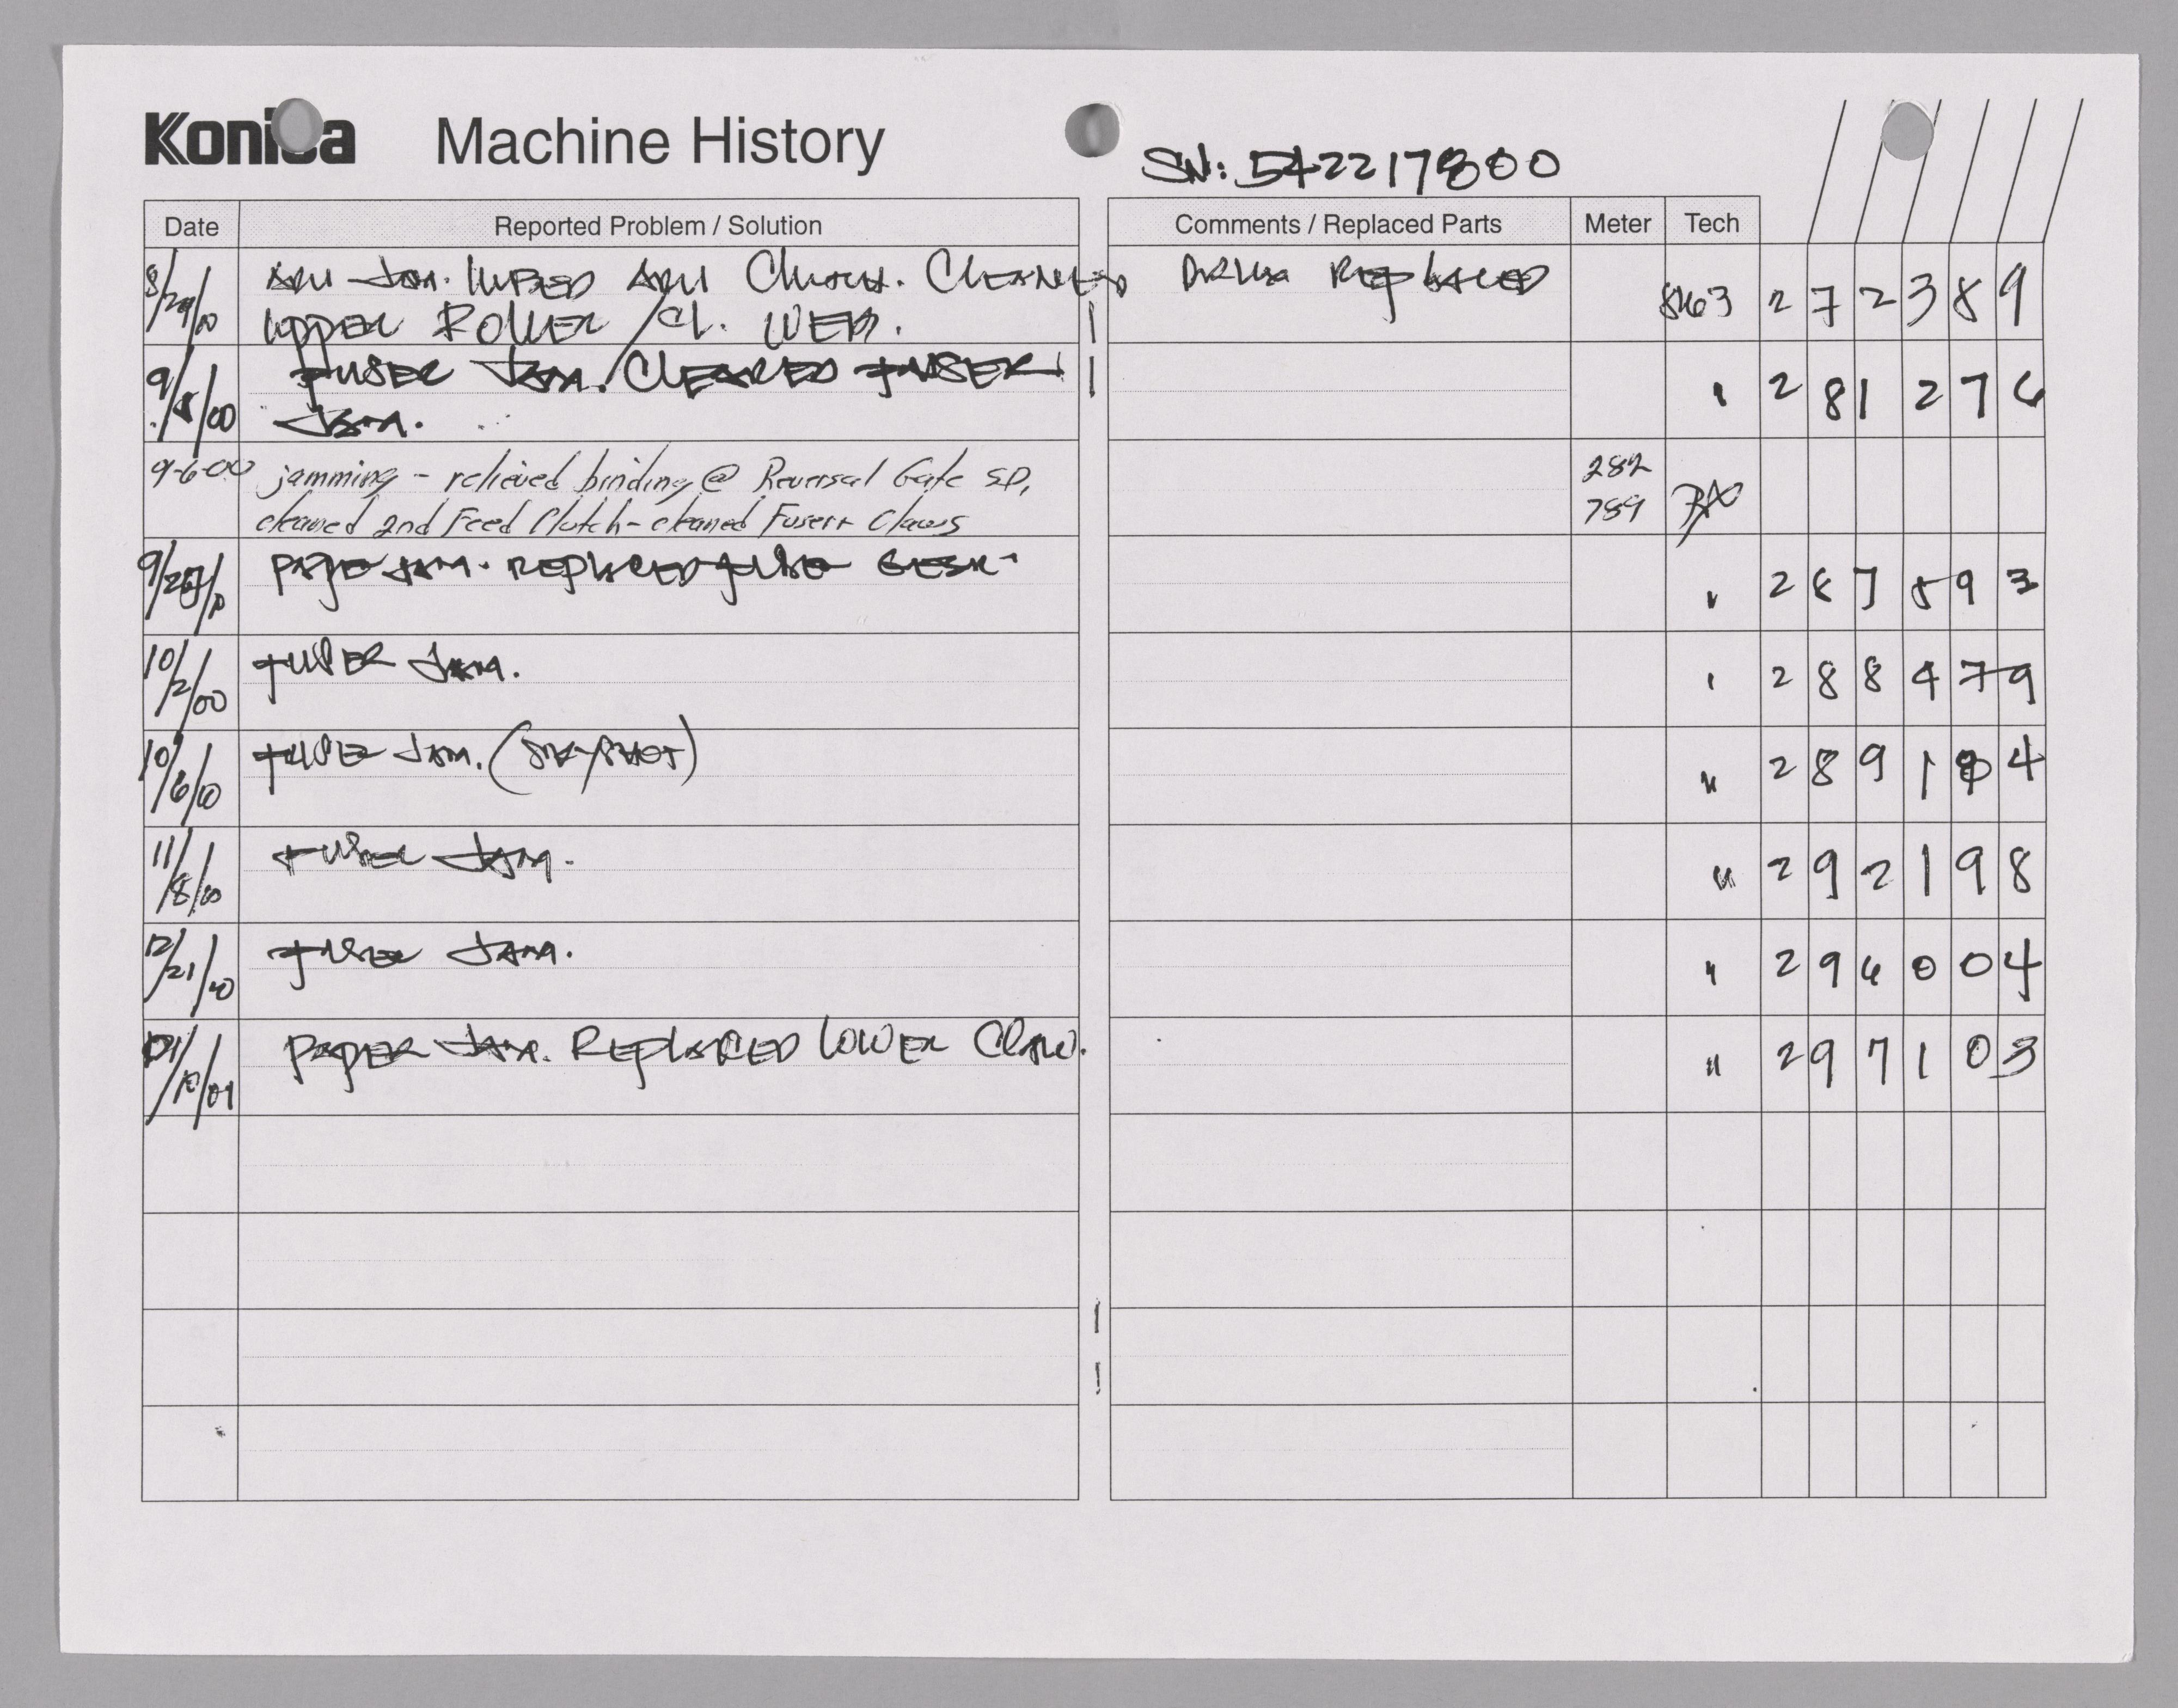 Konica Machine History
SN: 542217800
Date Reported Problem / Solution Comments / Replaced Parts Meter Tech
8/29/00 ADU JAM. LUBED ADU Clutch. CLEANED DRUM REPLACED
UPPER ROLLER / CL. WEB. 8463 272389
9/5/00 FUSER JAM. CLEARED FUSER
JAM. " 281276
9-6-00 jamming - relieved binding @ Reversal Gate SD, 282
cleaned 2nd Feed Clutch - cleaned Fuser Claws 789
PAPER JAM. REPLACED " 287893
10/2/00 FUSER JAM. " 288479
10/6/00 FUSER JAM. " 2891 4
11/8/00 FUSER JAM. " 292198
12/21/00 FUSER JAM. " 296004
01/10/01 PAPER JAM. REPLACED LOWER CLAW. " 297103